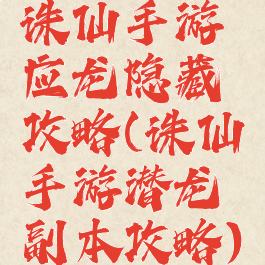 诛仙手游
应龙隐藏
攻略(诛仙
手游潜龙
副本攻略)